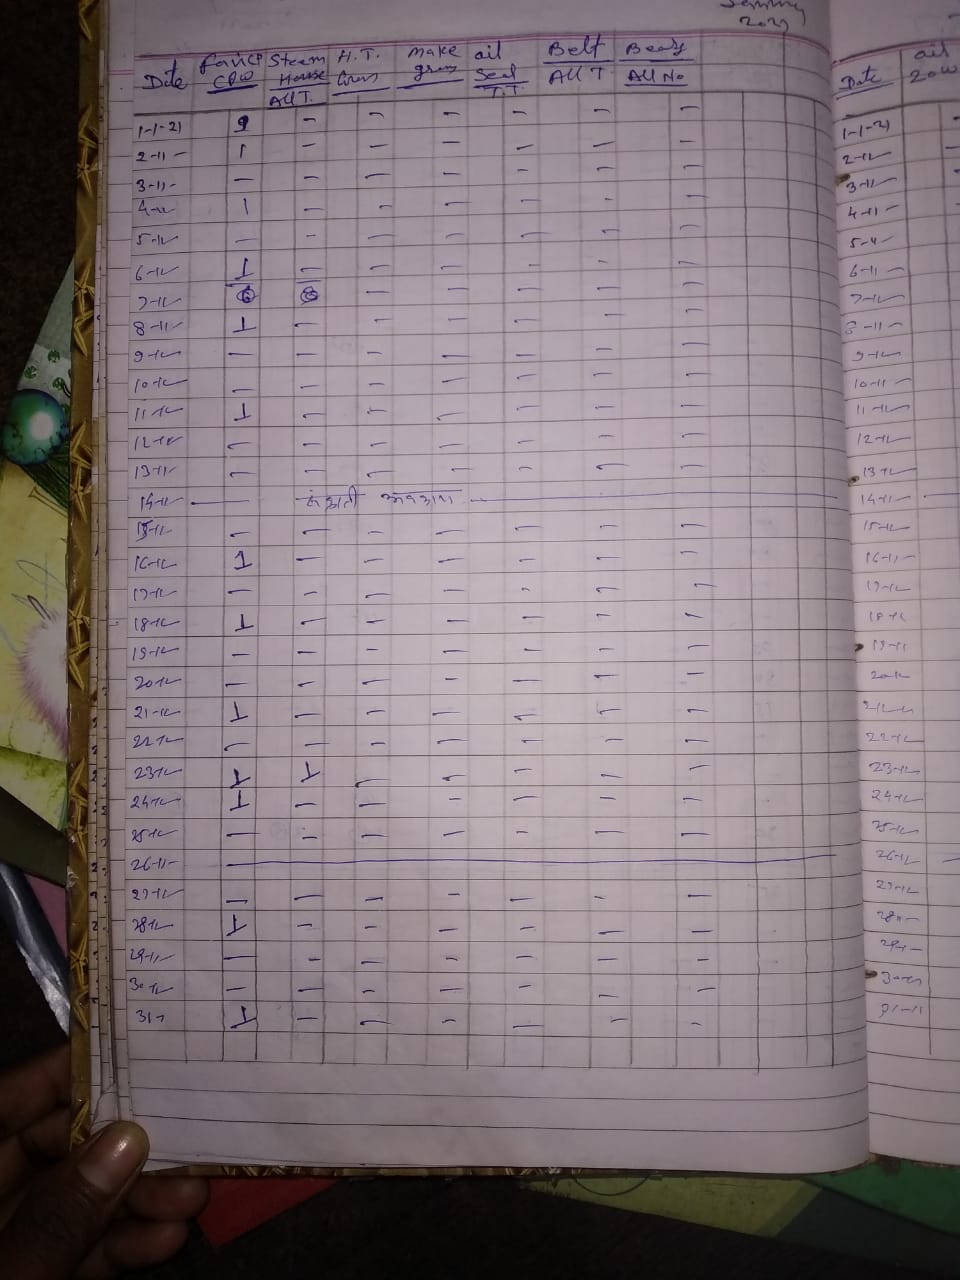 2021
Date Steam House All T. H.T. Make Oil Seal T.T. Belt All T All No
1-1-21 9 – – – – – –
2-11- 1 – – – – – –
3-11- – – – – – – –
4-11- 1 – – – – – –
5-11- – – – – – – –
6-11- 1 – – – – – –
7-11- 6 8 – – – – –
8-11- 1 – – – – – –
9-11- – – – – – – –
10-11- – – – – – – –
11-11- 1 – – – – – –
12-11- – – – – – – –
13-11- – – – – – – –
14-11- अवकाश
15-11- – – – – – – –
16-11- 1 – – – – – –
17-11- – – – – – – –
18-11- 1 – – – – – –
19-11- – – – – – – –
20-11- – – – – – – –
21-11- 1 – – – – – –
22-11- – – – – – – –
23-11- 1 1 – – – – –
24-11- 1 – – – – – –
25-11- – – – – – – –
26-11-
27-11- – – – – – – –
28-11- 1 – – – – – –
29-11- – – – – – – –
30-11- – – – – – – –
31- 1 – – – – – –
Date oil
1-1-21
2-11-
3-11-
4-11-
5-11-
6-11-
7-11-
8-11-
9-11-
10-11-
11-11-
12-11-
13-11-
14-11-
15-11-
16-11-
17-11-
18-11-
19-11-
20-11-
21-11-
22-11-
23-11-
24-11-
25-11-
26-11-
27-11-
28-11-
29-11-
30-11-
31-11